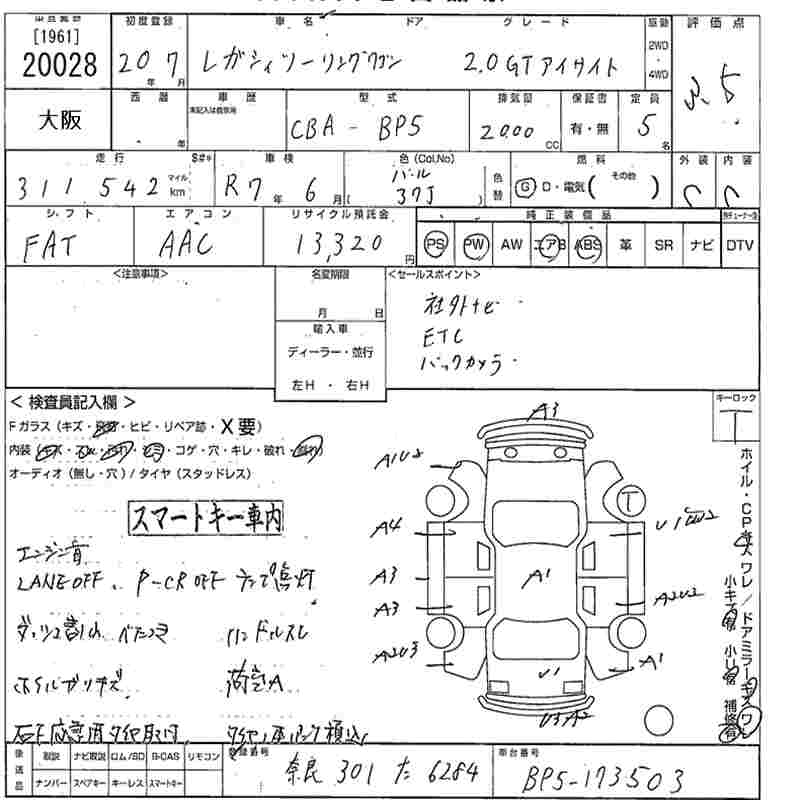 [1961]
20028
大阪
初度登録
20 年 7 月
車名
レガシィツーリングワゴン
ドア
グレード
2.0GTアイサイト
駆動
2WD
4WD
評価点
西暦
年
車歴
未記入は自家用
型式
CBA - BP5
排気量
2000 CC
保証書
有・無
定員
5 名
走行
311 542
マイル
km
S#*
車検
R7 年 6 月
色(Col.No)
パール
(37J)
色替
燃料
G D・電気( その他 )
外装
C
内装
C
シフト
FAT
エアコン
AAC
リサイクル預託金
13,320 円
純正装備品
PS PW AW エアB ABS 革 SR ナビ DTV
<注意事項>
名変期限
月 日
輸入車
ディーラー・並行
左H・右H
<セールスポイント>
社外ナビ
ETC
バックカメラ
キーロック
T
<検査員記入欄>
Fガラス(キズ・飛石・ヒビ・リペア跡・X要)
内装(キズ・スレ・汚れ・シミ・コゲ・穴・キレ・破れ・
オーディオ(無し・穴)/タイヤ(スタッドレス)
スマートキー車内
エンジン音
LANE OFF、P-CR OFF ランプ点灯
ダッシュ割れ ベタつき
ハンドルスレ
ホイルガリキズ
荷室A
石下応急用タイヤ取付
タイヤノーマルパック積込
A3
A1U2
A4
A3
A3
A2U3
A1
T
A2U2
A1
U1
U3A2
ホイル・CPキズ ワレ/ドアミラーキズ ワレ
後送品
取説 ナビ取説 ロム/SD B-CAS リモコン
ナンバー スペアキー キーレス スマートキー
登録番号
奈良 301 た 6284
車台番号
BP5-173503